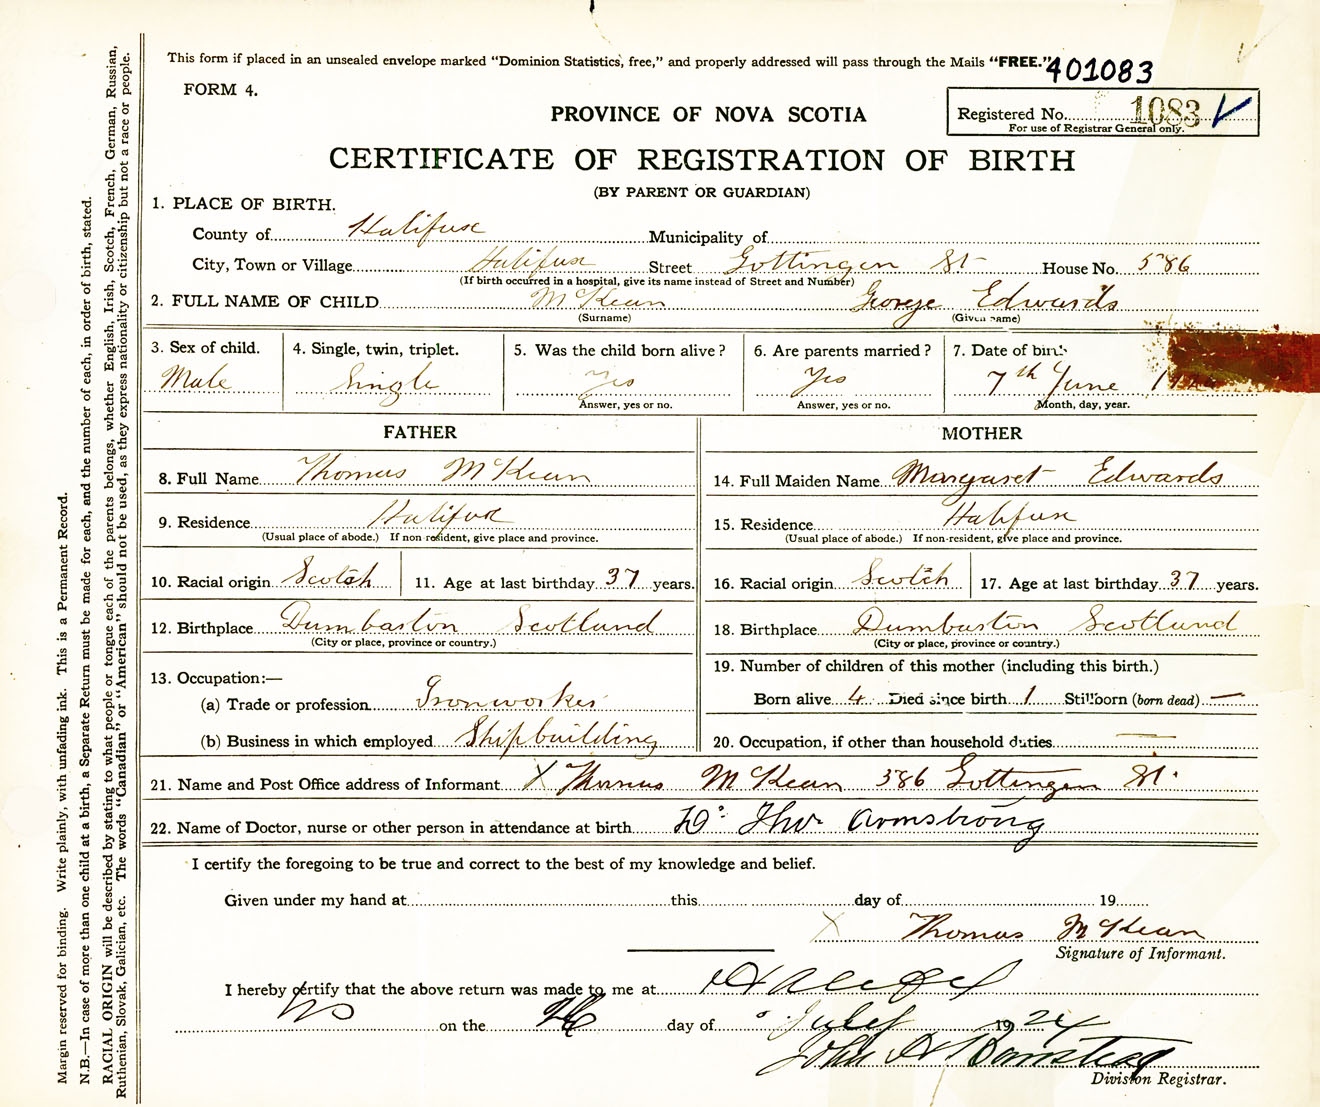 This form if placed in an unsealed envelope marked "Dominion Statistics, free," and properly addressed will pass through the Mails "FREE."
401083
FORM 4.
PROVINCE OF NOVA SCOTIA
Registered No. 1083
For use of Registrar General only.
CERTIFICATE OF REGISTRATION OF BIRTH
(BY PARENT OR GUARDIAN)
1. PLACE OF BIRTH.
County of Halifax Municipality of
City, Town or Village Halifax Street Gottingen St House No. 586
(If birth occurred in a hospital, give its name instead of Street and Number)
2. FULL NAME OF CHILD McKean George Edwards
(Surname) (Given name)
3. Sex of child. 4. Single, twin, triplet. 5. Was the child born alive? 6. Are parents married? 7. Date of birth
Male Single Yes Yes 7th June
Answer, yes or no. Answer, yes or no. Month, day, year.
FATHER MOTHER
8. Full Name Thomas McKean 14. Full Maiden Name Margaret Edwards
9. Residence Halifax 15. Residence Halifax
(Usual place of abode.) If non-resident, give place and province. (Usual place of abode.) If non-resident, give place and province.
10. Racial origin Scotch 11. Age at last birthday 37 years. 16. Racial origin Scotch 17. Age at last birthday 37 years.
12. Birthplace Dumbarton Scotland 18. Birthplace Dumbarton Scotland
(City or place, province or country.) (City or place, province or country.)
19. Number of children of this mother (including this birth.)
13. Occupation:—
(a) Trade or profession Ironworker Born alive 4 Died since birth 1 Stillborn (born dead) —
(b) Business in which employed Shipbuilding 20. Occupation, if other than household duties —
21. Name and Post Office address of Informant X Thomas McKean 586 Gottingen St.
22. Name of Doctor, nurse or other person in attendance at birth Dr Thos Armstrong
I certify the foregoing to be true and correct to the best of my knowledge and belief.
Given under my hand at this day of 19
X Thomas McKean
Signature of Informant.
I hereby certify that the above return was made to me at Halifax
NS on the day of July 1924
John
Division Registrar.
Margin reserved for binding. Write plainly, with unfading ink. This is a Permanent Record.
N.B.—In case of more than one child at a birth, a Separate Return must be made for each, and the number of each, in order of birth, stated.
RACIAL ORIGIN will be described by stating to what people or tongue each of the parents belongs, whether English, Irish, Scotch, French, German, Russian,
Ruthenian, Slovak, Galician, etc. The words "Canadian" or "American" should not be used, as they express nationality or citizenship but not a race or people.